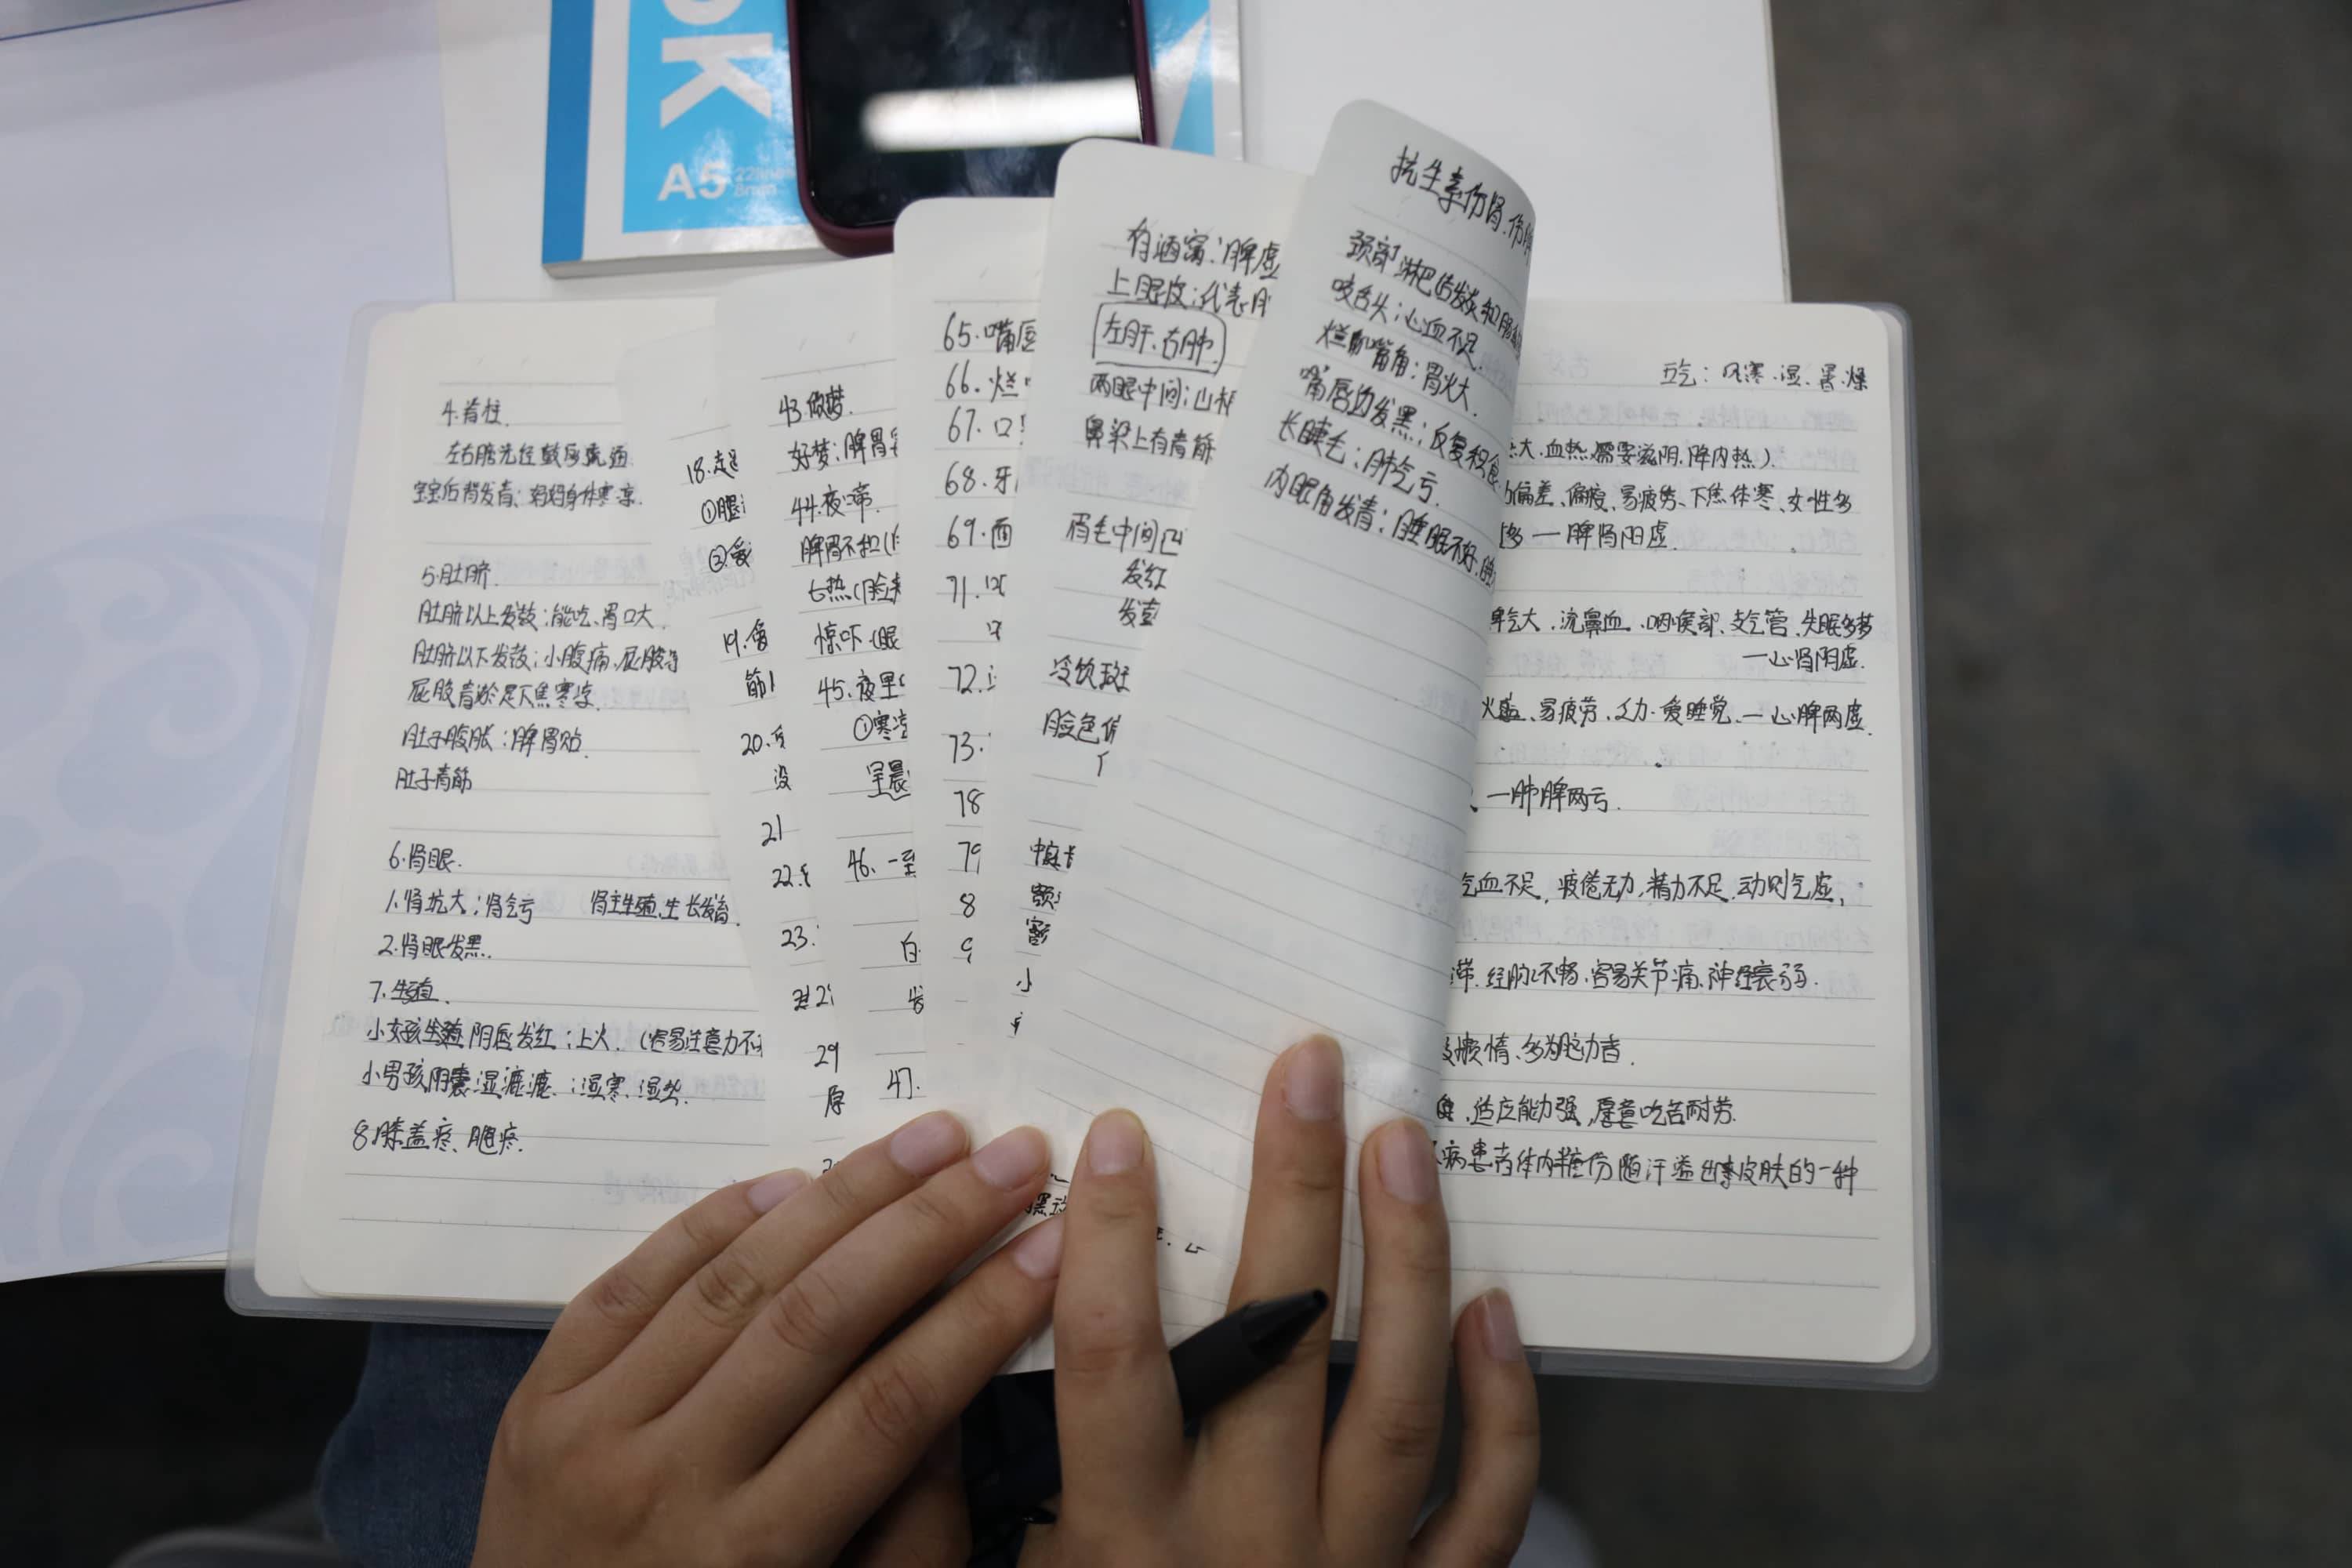 OK
A5
22lines
8mm
4.脊柱.
左右膀光经鼓包疏通
宝宝后背发青:妈妈身体寒凉.
5.肚脐.
肚脐以上发鼓:能吃、胃口大.
肚脐以下发鼓:小腹痛、屁股
屁股青淤足下焦寒凉.
肚子腹胀:脾胃贴.
肚子青筋
6.肾眼.
1.肾坑大:肾气亏 肾主生殖、生长发育.
2.肾眼发黑.
7.生殖.
小女孩生殖阴唇发红:上火.(容易注意力不
小男孩阴囊湿漉漉.:湿寒.湿热.
8.膝盖疼、腿疼.
18.起
①腿
②爱
19.鱼
筋
20.
没
21
22.
23.
29
原
43.做梦.
好梦:脾胃
44.夜啼.
脾胃不和(
七热(脸
惊吓(眼
45.夜里
①寒
早晨
46.一至
白
47.
65.嘴唇
66.烂
67.口
68.牙
69.面
71.
72.
73.
78
79
8
9
有酒窝:脾虚
上眼皮:代表
左肝、右肺.
两眼中间:山根
鼻梁上有青筋
眉毛中间凹
发红
发青
冷饮斑
脸色
中庭
额
小
抗生素伤肾.伤脾
颈部淋巴结发炎和肠
咬舌头:心血不足.
烂嘴角:胃火大.
嘴唇边发黑:反复积食
长睫毛:肺气亏.
内眼角发青:睡眠不好.
五气:风寒.湿、暑.燥
大.血热.需要滋阴.降内热).
偏差、偏瘦、易疲劳、下焦体寒、女性多
多一脾肾阳虚.
脾气大.流鼻血.咽喉部、支气管、失眠多梦
一心肾阴虚.
火盛、易疲劳、乏力.爱睡觉、一心脾两虚.
一肺脾两亏.
气血不足,疲倦无力,精力不足.动则气虚,
滞.经脉不畅.容易关节痛、神经衰弱.
懒惰、多为脑力者.
.适应能力强,愿意吃苦耐劳.
病患者体内糖份随汗溢出来皮肤的一种
黑